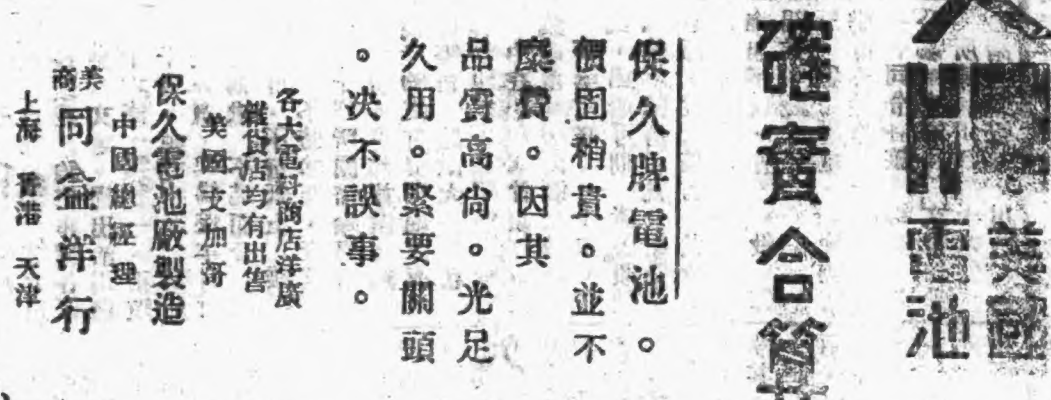 美國
電池
確實合算
保久牌電池。
價固稍貴。並不
糜費。因其
品質高尙。光足
久用。緊要關頭
。决不誤事。
各大電料商店洋廣
雜貨店均有出售
美國支加哥
保久電池廠製造
中國總經理
美商同益洋行
上海 香港 天津